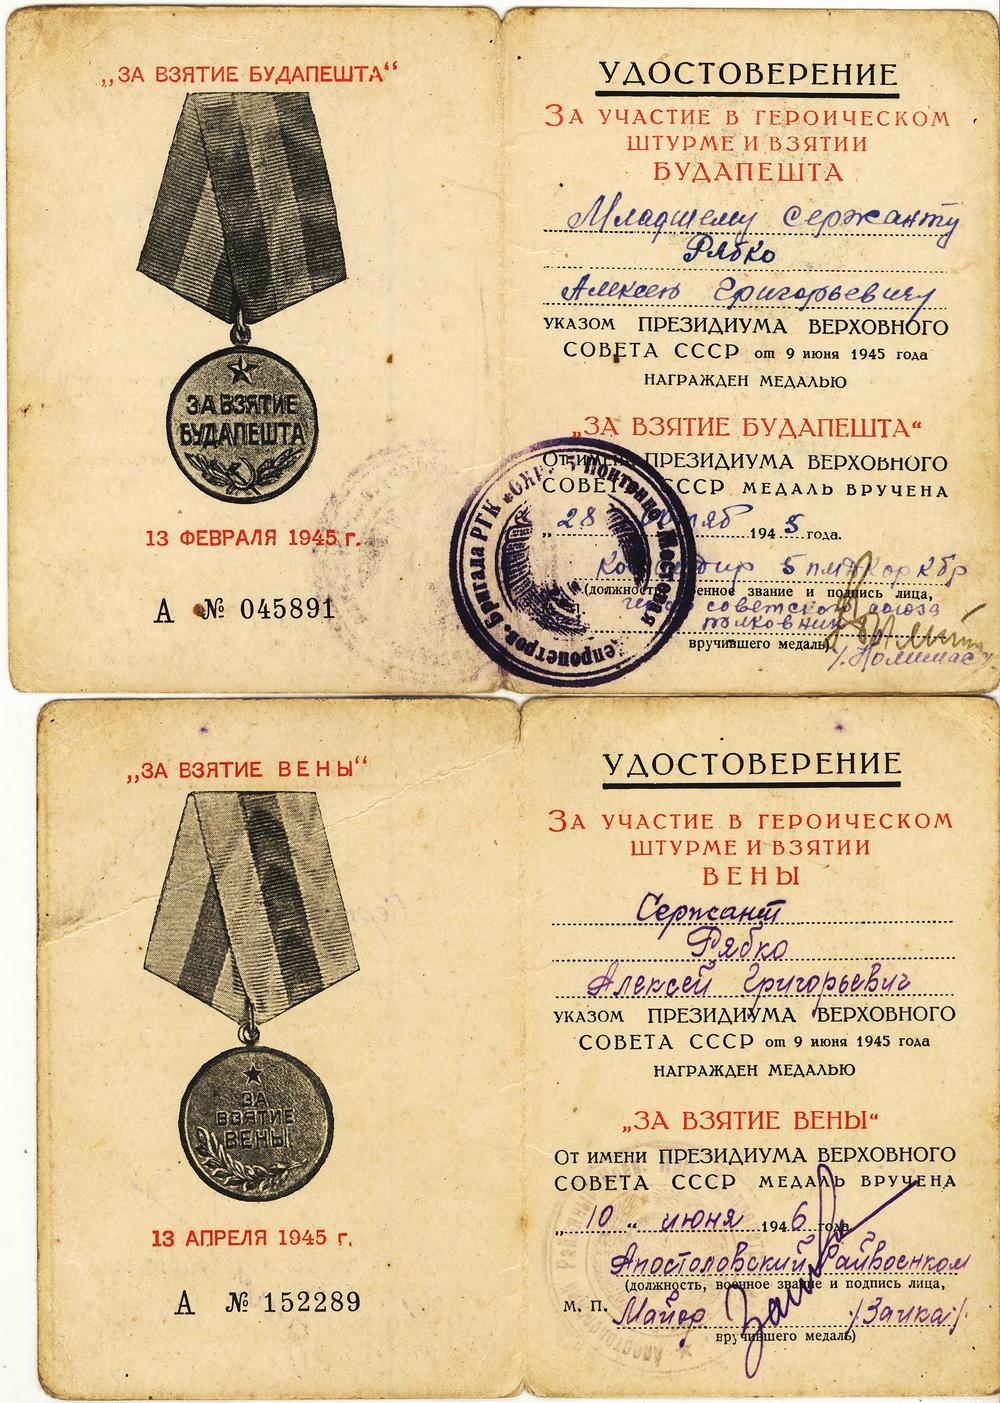 „ЗА ВЗЯТИЕ БУДАПЕШТА“
ЗА ВЗЯТИЕ
БУДАПЕШТА
13 ФЕВРАЛЯ 1945 г.
А № 045891
УДОСТОВЕРЕНИЕ
ЗА УЧАСТИЕ В ГЕРОИЧЕСКОМ
ШТУРМЕ И ВЗЯТИИ
БУДАПЕШТА
Младшему Сержанту
Рябко
Алексею Григорьевичу
УКАЗОМ ПРЕЗИДИУМА ВЕРХОВНОГО
СОВЕТА СССР от 9 июня 1945 года
НАГРАЖДЕН МЕДАЛЬЮ
„ЗА ВЗЯТИЕ БУДАПЕШТА“
ОТ ИМЕНИ ПРЕЗИДИУМА ВЕРХОВНОГО
СОВЕТ СССР МЕДАЛЬ ВРУЧЕНА
„28 1945 года.
Командир 5 
(должность, военное звание и подпись лица,
советского союза
полковник
вручившего медаль)
Понтонно-Мостовая
Бригада РГК
„ЗА ВЗЯТИЕ ВЕНЫ“
ЗА
ВЗЯТИЕ
ВЕНЫ
13 АПРЕЛЯ 1945 г.
А № 152289
УДОСТОВЕРЕНИЕ
ЗА УЧАСТИЕ В ГЕРОИЧЕСКОМ
ШТУРМЕ И ВЗЯТИИ
ВЕНЫ
Сержант
Рябко
Алексей Григорьевич
УКАЗОМ ПРЕЗИДИУМА ВЕРХОВНОГО
СОВЕТА СССР от 9 июня 1945 года
НАГРАЖДЕН МЕДАЛЬЮ
„ЗА ВЗЯТИЕ ВЕНЫ“
ОТ ИМЕНИ ПРЕЗИДИУМА ВЕРХОВНОГО
СОВЕТА СССР МЕДАЛЬ ВРУЧЕНА
„10“ июня 1946 года
Апостоловский Райвоенком
(должность, военное звание и подпись лица,
М. П. Майор /Заика/
вручившего медаль)